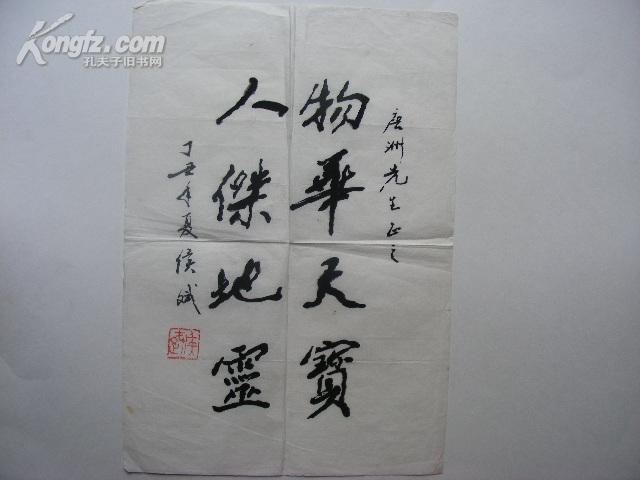 Kongfz.com
孔夫子旧书网
唐洲先生正之
物華天寶
人傑地靈
丁丑年夏侯斌